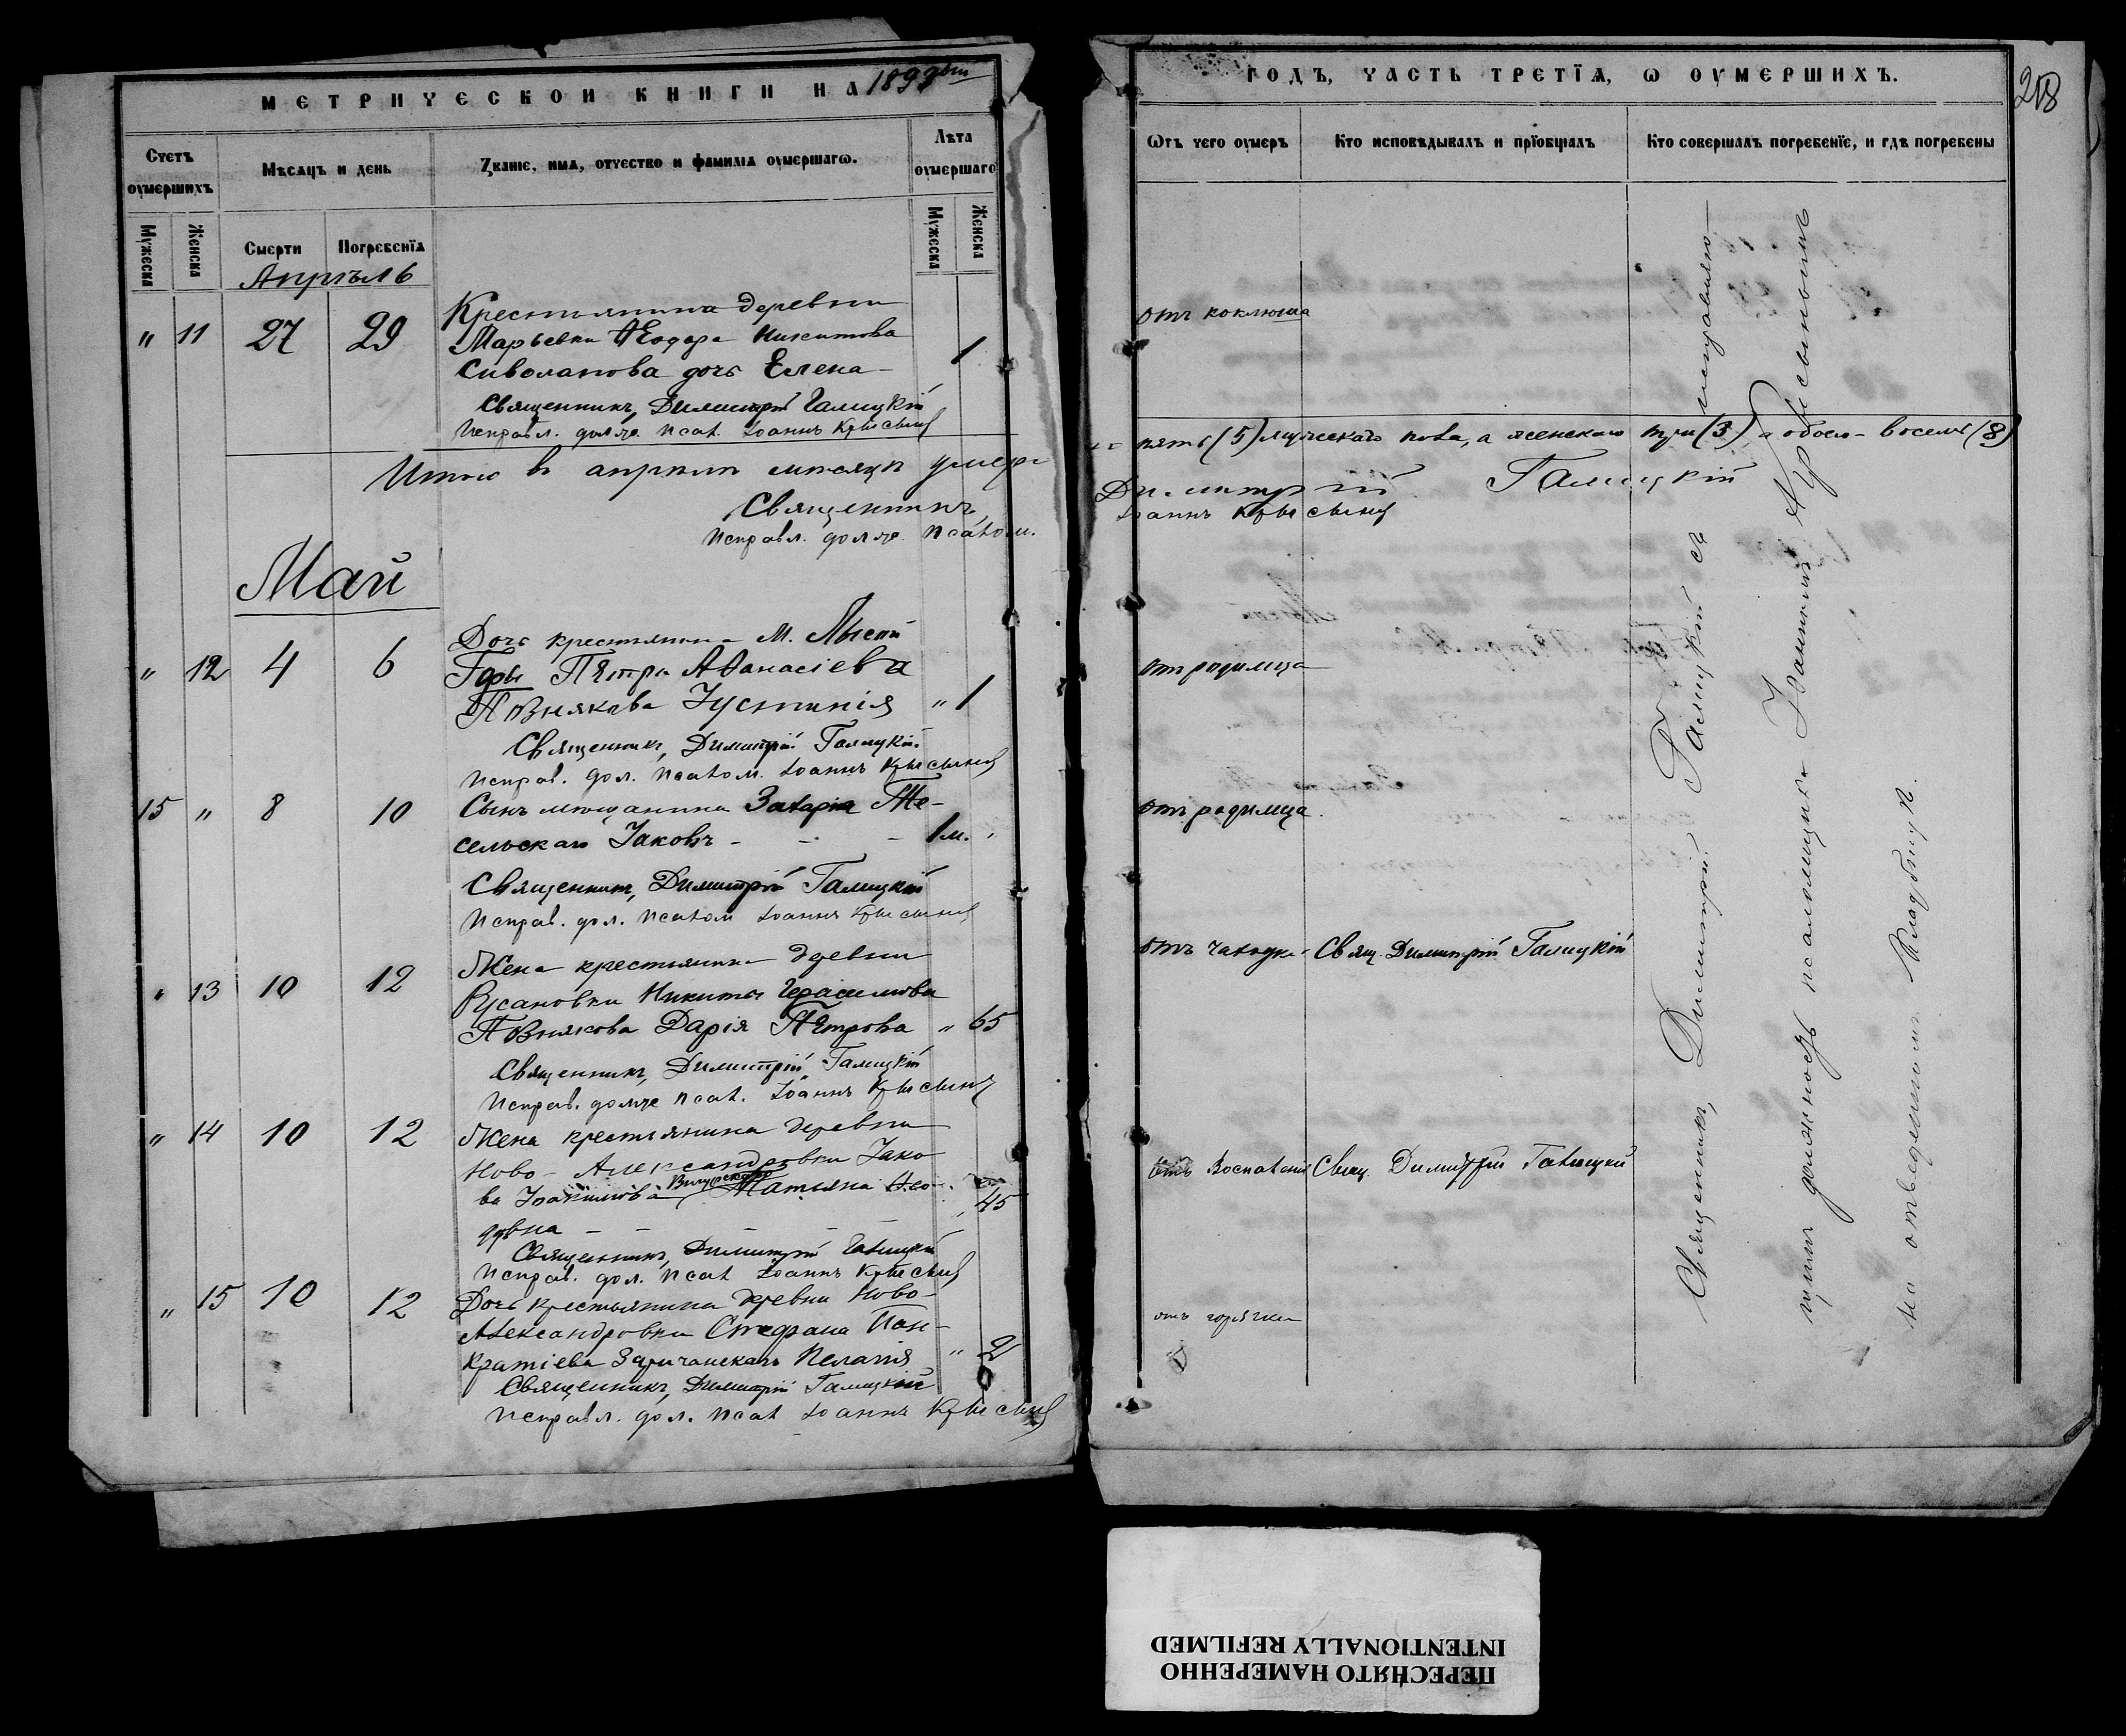 МЕТРИЧЕСКОЙ КНИГИ НА 1893 ый
Счетъ оумершихъ
Мѣсяцъ и день
Званіе, имя, отчество и фамилія оумершагѡ.
Лѣта оумершаго
Мужеска
Женска
Смерти
Погребенїя
Мужеска
Женска
Апрѣль
" 11 27 29
Крестьянина деревни
Марьевки Ѳеодора Никитова
Сиволапова дочь Елена - 1
Священникъ, Димитрій Галицкій
Исправл. долж. псал. Іоаннъ Крысинъ
Итого въ апрѣлѣ мѣсяцѣ умерло
Священникъ
Исправл. долж. псалом.
Май
" 12 4 6
Дочь крестьянина М. Лысой
Горы Петра Аѳанасіева
Познякова Іустинія " 1
Священникъ, Димитрій Галицкій
Исправ. дол. псалом. Іоаннъ Крысинъ
15 " 8 10
Сынъ мѣщанина Захарія Те-
сельскаго Іаковъ - - - 1 м. "
Священникъ, Димитрій Галицкій
Исправ. дол. псалом Іоаннъ Крысинъ
" 13 10 12
Жена крестьянина деревни
Русановки Никиты Герасимова
Познякова Дарія Петрова " 65
Священникъ, Димитрій Галицкій
Исправ. долж псал. Іоаннъ Крысинъ
" 14 10 12
Жена крестьянина деревни
Ново-Александровки Іако-
ва Іоакимова Татьяна Ѳео- " 45
дрвна - - -
Священникъ, Димитрій Галицкій
Исправ. дол. псал Іоаннъ Крысинъ
" 15 10 12
Дочь крестьянина деревни Ново-
Александровки Стефана Пан-
кратіева Заричанскаго Пелагія " 2
Священникъ, Димитрій Галицкій
Исправл. дол. псал Іоаннъ Крысинъ
ГОДЪ, ЧАСТЬ ТРЕТЇЯ, Ѡ ОУМЕРШИХЪ.
218
Ѿтъ чего оумеръ
Кто исповѣдывалъ и прїобщалъ
Кто совершалъ погребенїе, и гдѣ погребены
отъ коклюша
пять (5) мужескаго пола, а женскаго три (3), а обоего - восемь (8)
Димитрій Галицкій
Іоаннъ Крысинъ
отъ родимца
отъ родимца.
отъ чахотки Свящ. Димитрій Галицкій
отъ воспаленія Свящ. Димитрій Галицкій
отъ горячки
Священникъ, Димитрій Галицкій съ исправляю-
щимъ должность псаломщика Іоанномъ Крысинымъ
на отведенномъ кладбищѣ.
ПЕРЕСНЯТО НАМЕРЕННО
INTENTIONALLY REFILMED